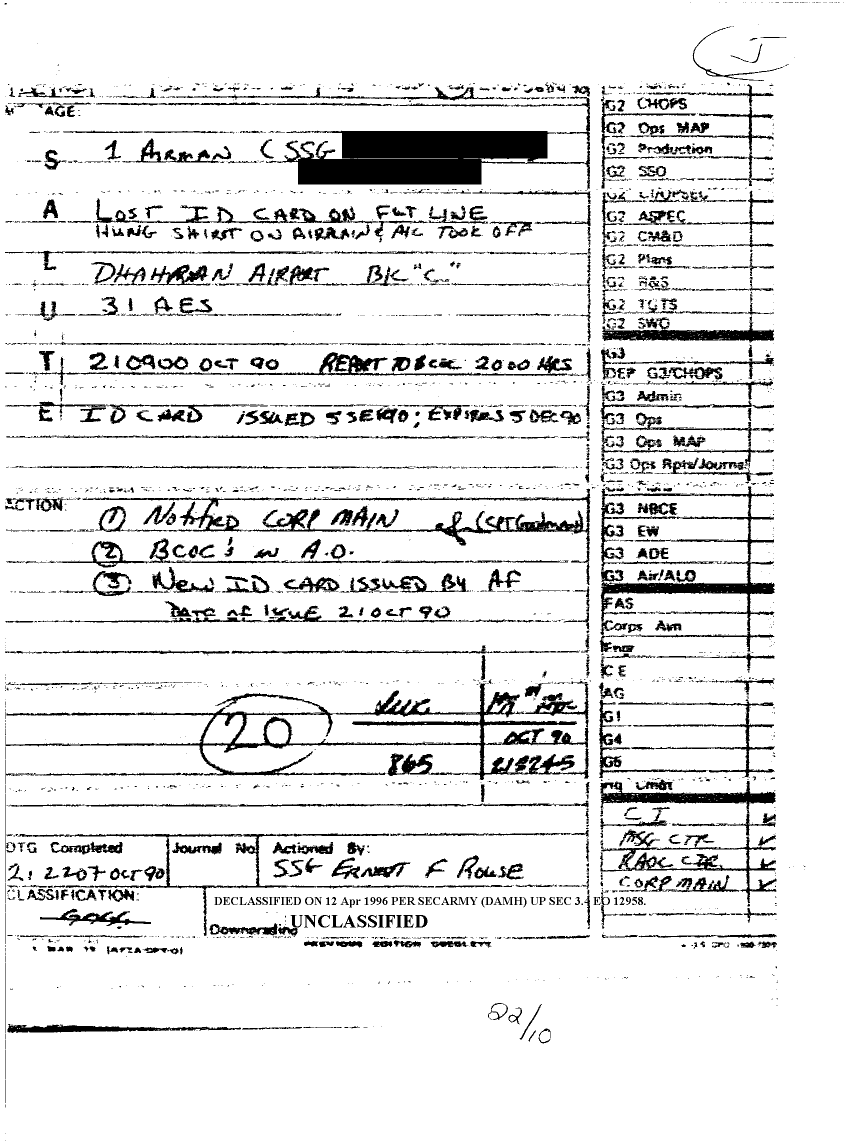 J
AGE:
S 1 AIRMAN (SSG
A LOST ID CARD ON FLT LINE
HUNG SHIRT ON & A/C TOOK OFF
L DHAHRAN AIRPORT B/C "C"
U 31 AES
T 210900 OCT 90 REPORT TO BCOC 2000 HRS
E ID CARD ISSUED 5 SEP 90; EXPIRES 5 DEC 90
ACTION:
(1) Notified CORP MAIN
(2) BCOC's in A.O.
(3) New ID CARD ISSUED By AF
DATE of ISSUE 21 OCT 90
20
OCT 90
865 212245
DTG Completed Journal No Actioned By:
2120 7 OCT 90 SSG ERNEST F ROUSE
CLASSIFICATION:
DECLASSIFIED ON 12 Apr 1996 PER SECARMY (DAMH) UP SEC 3.4 EO 12958.
UNCLASSIFIED
Downgrading
PREVIOUS EDITION OBSOLETE
G2 CHOPS
G2 Ops MAP
G2 Production
G2 SSO
G2 CI/OPSEC
G2 ASPEC
G2 CM&D
G2 Plans
G2 R&S
G2 TGTS
G2 SWO
G3
DEP G3/CHOPS
G3 Admin
G3 Ops
G3 Ops MAP
G3 Ops Rpts/Journal
G3 Plans
G3 NBCE
G3 EW
G3 ADE
G3 Air/ALO
FAS
Corps Avn
Engr
CE
AG
G1
G4
G5
Hq Cmdt
CI ✓
MSG CTR ✓
RAOC CTR ✓
CORP MAIN ✓
22/10